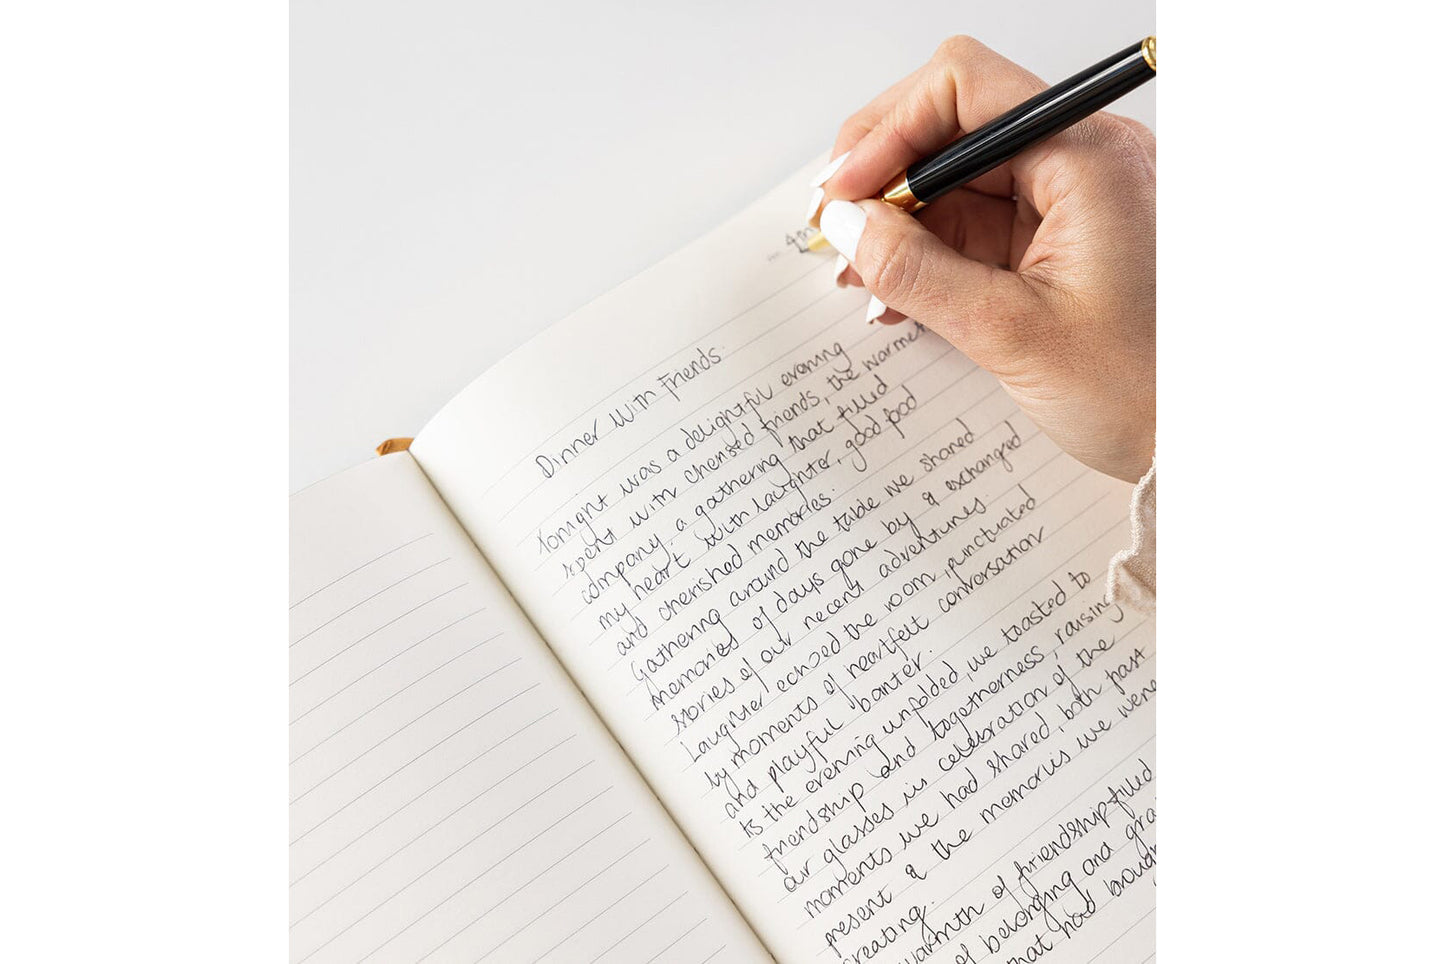 Dinner with Friends.
Tonight was a delightful evening
spent with cherised friends, the warmet
company, a gathering that filled
my heart with laughter, good food
and cherished memories.
Gathering around the table we shared
memories of days gone by & exchanged
stories of our recent adventures.
Laughter echoed the room, punctuated
by moments of heartfelt conversation
and playful banter.
As the evening unfolded, we toasted to
friendship and togetherness, raising
our glasses in celebration of the
moments we had shared, both past
present & the memories we were
creating.
warmth of friendship filled
of belonging and gra
that had brough